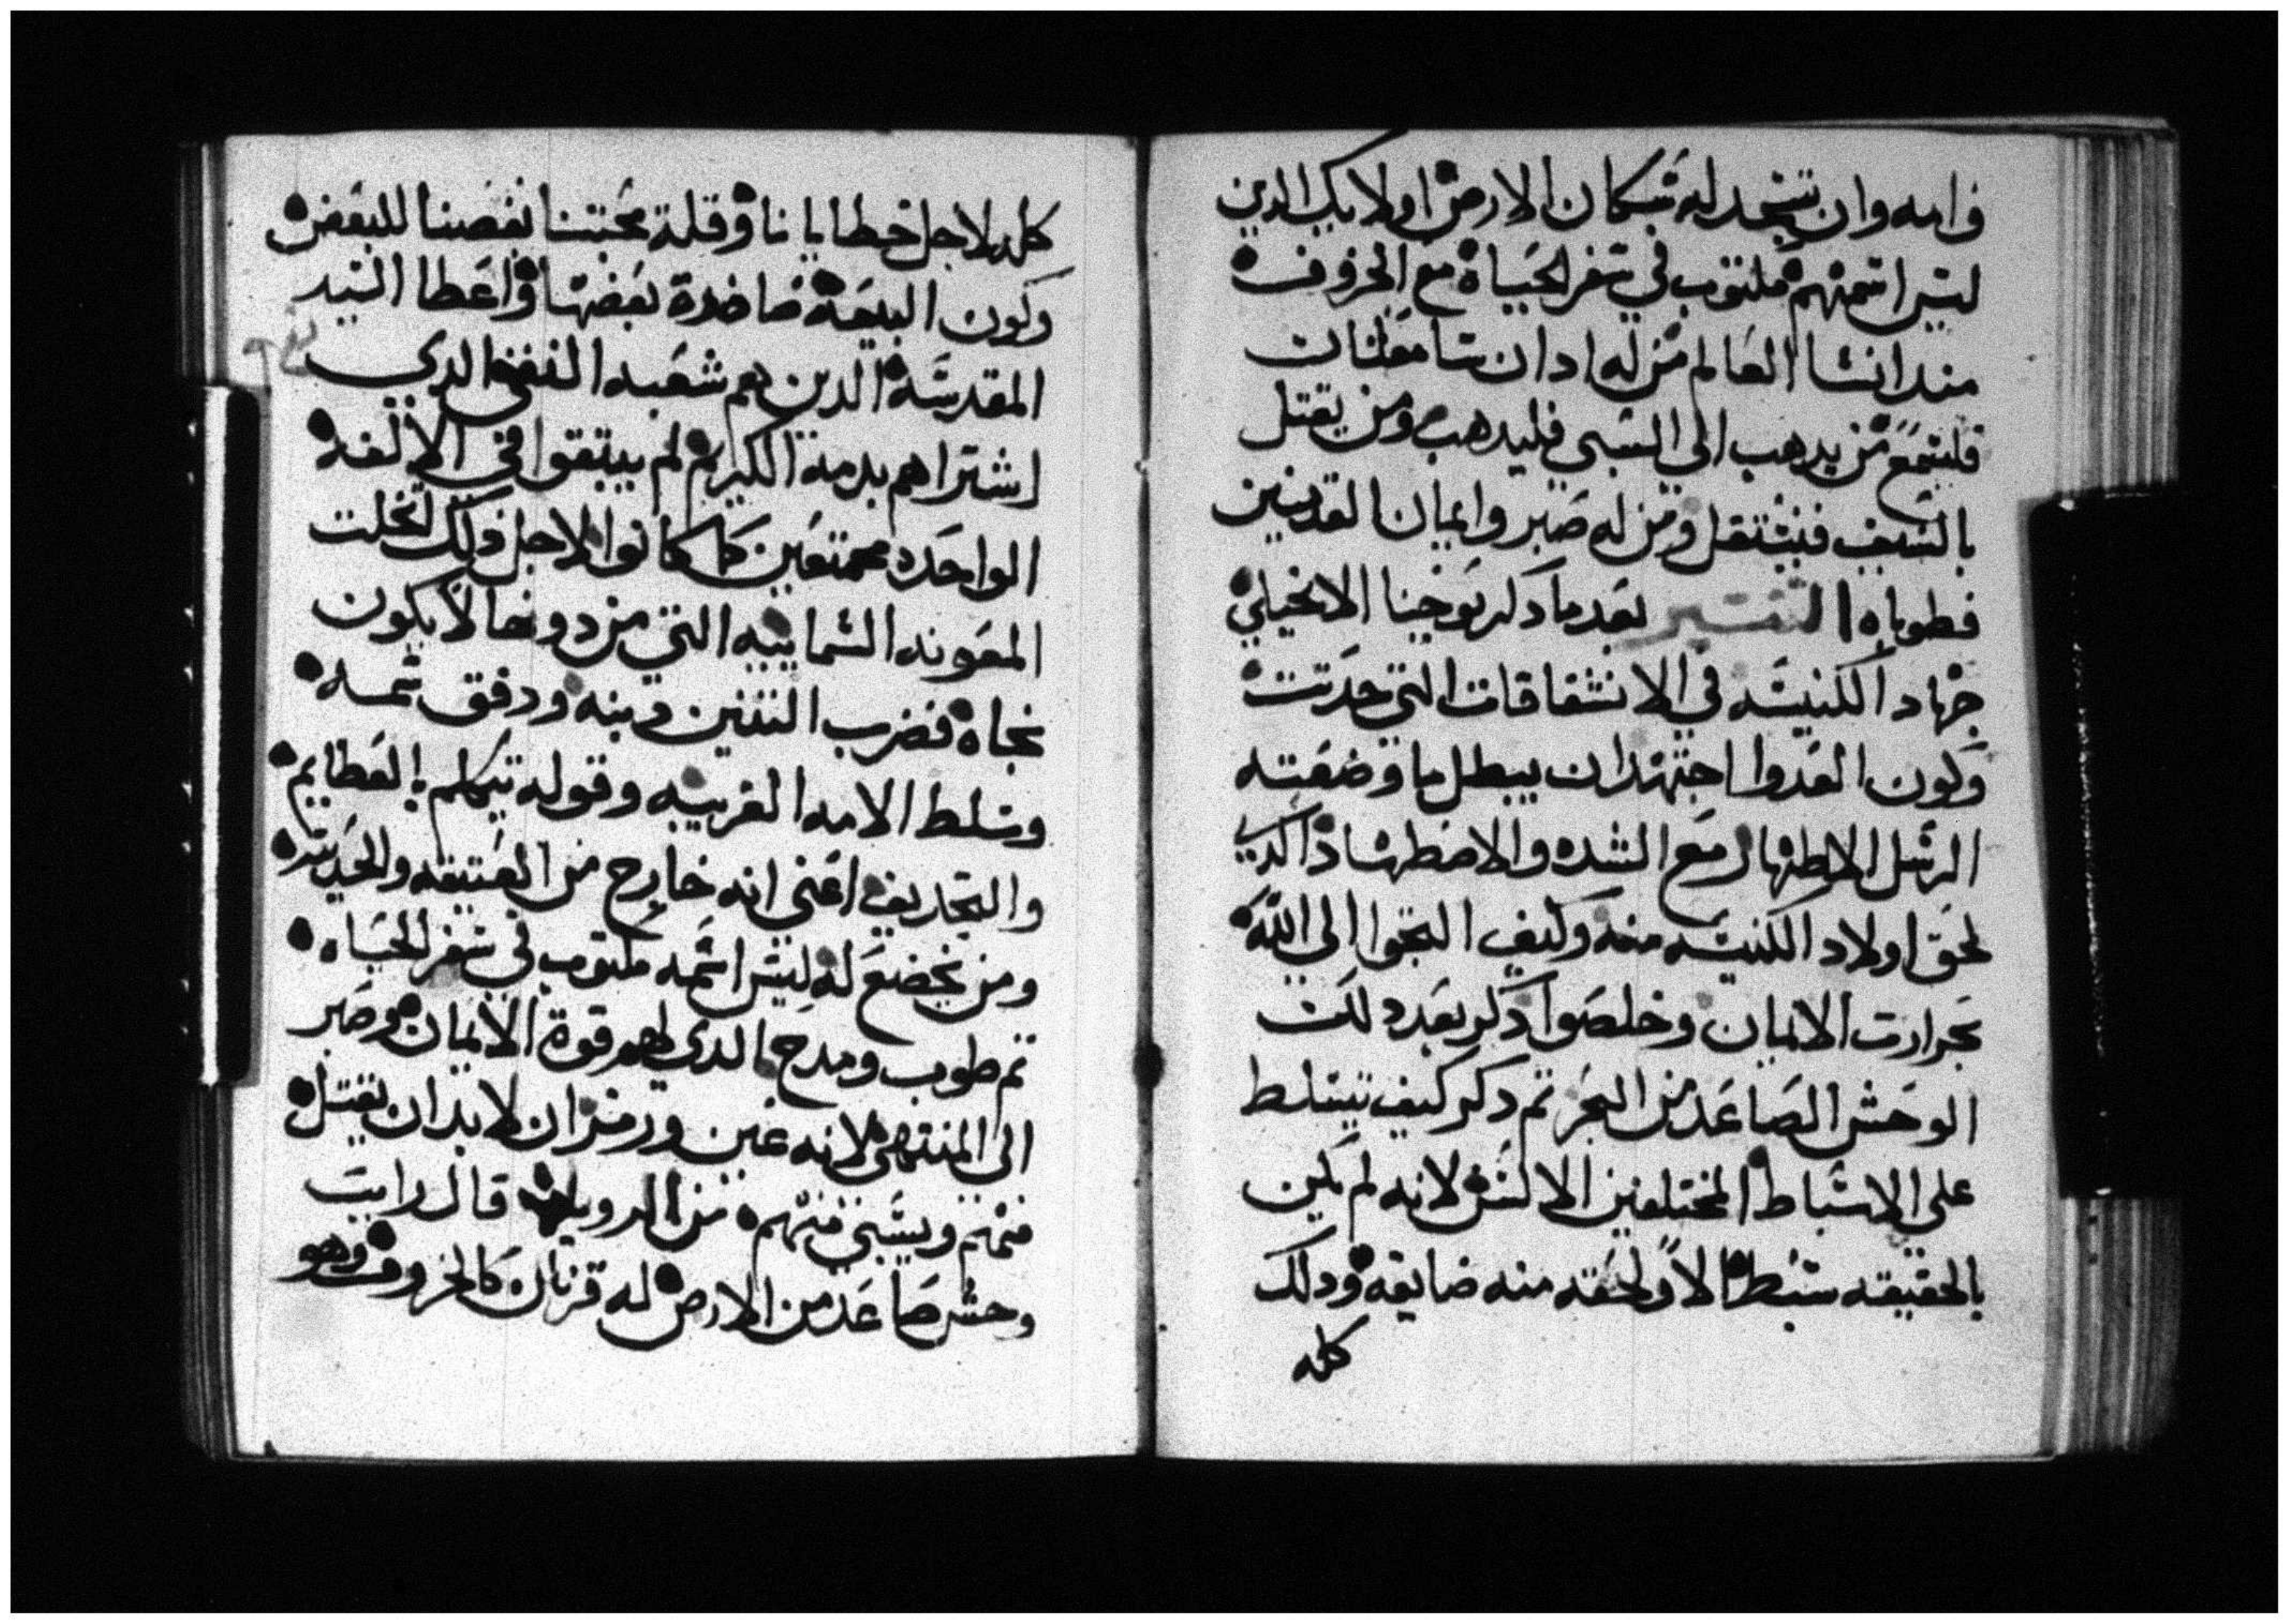 وامه وان تسجد له سكان الارض اولايك الدين
ليس اسمهم مكتوب في سفر الحياة مع الخروف
مند انشا العالم من له ادان سامعات
فليسمع من يدهب الي السبي فليدهب ومن يقتل
بالسيف فبه ومن له صبر وايمان القديسين
فطوباه التفسير بعد ما دكر يوحنا الانجيلي
جهاد الكنيسه في الانشقاقات التي حدتت
وكون العدوا اجتهد ان يبطل ما وضعته
الرسل الاطهار مع الشده والاضطهاد الدي
لحق اولاد الكنيسه منه وكيف التجوا الي الله
بحرارت الايمان وخلصوا دكر بعد دلك
الوحش الصاعد من البحر تم دكر كيف تسلط
علي الاسباط المختلفين الالسن لانه لم يكن
بالحقيقه سبط الا ولحقه منه ضايقه ودلك
كله
كله لاجل خطايانا وقلة محبتنا بعضنا للبعض
وكون البيعة مضادة بعضها واعطا السيد
المقدسة الدين هم شعبه الدي
اشتراهم بدمه الكريم لم يبتقوا في الالفه
الواحده مجمتعين كما كانوا لاجل دلك تخلت
المعونه السماييه التي من دونها لا يكون
نجاة فضرب التنين دينه ودفق سمه
وسلط الامه الغريبه وقوله تيكلم بالعظايم
والتجاديف اعني انه خارج من العتيقه والحديته
ومن يخضع له ليس اسمه مكتوب في سفر الحياه
تم طوب ومدح الدي لهم قوة الايمان وصبر
الي المنتهي لانه عين ورمز ان لا بد ان يقتل
منهم ويسبي منهم من الرويا قال رايت
وحش صاعد من الارض له قرنان كالخروف وهو